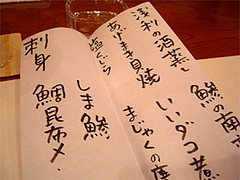 浅利の酒蒸し
あげまき貝焼
塩くじら
しま鯵
鯛昆布〆.
刺身
鯵の南
いいダコ煮
まじゃくの唐